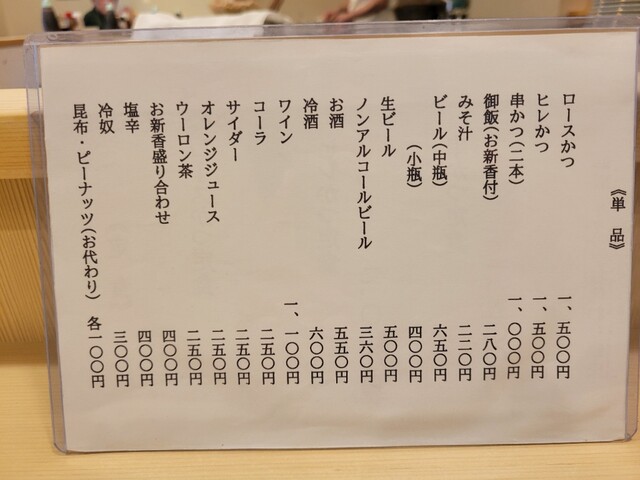 《単 品》
ロースかつ 一、五〇〇円
ヒレかつ 一、五〇〇円
串かつ(二本) 一、〇〇〇円
御飯(お新香付) 二八〇円
みそ汁 二二〇円
ビール(中瓶) 六五〇円
(小瓶) 四〇〇円
生ビール 五〇〇円
ノンアルコールビール 三六〇円
お酒 五五〇円
冷酒 六〇〇円
ワイン 一、一〇〇円
コーラ 二五〇円
サイダー 二五〇円
オレンジジュース 二五〇円
ウーロン茶 二五〇円
お新香盛り合わせ 四〇〇円
塩辛 四〇〇円
冷奴 三〇〇円
昆布・ピーナッツ(お代わり) 各一〇〇円